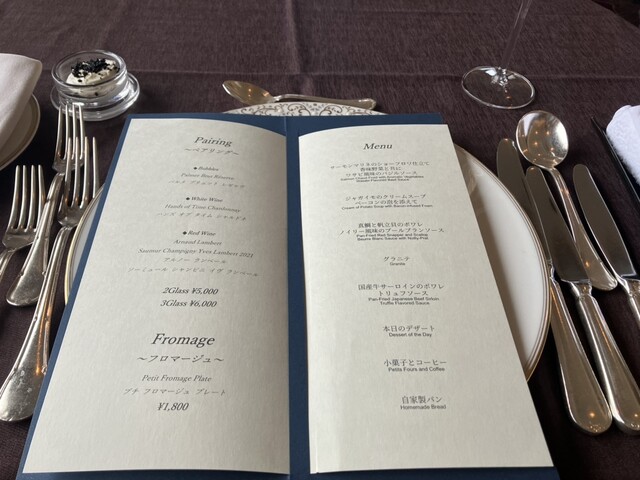 Pairing
～ペアリング～
◆Bubbles
Palmer Brut Réserve
◆White Wine
Hands of Time Chardonnay
ハンズ オブ タイム シャルドネ
◆Red Wine
Armand Lambert
Saumur Champigny Yves Lambert 2021
アルノー ランベール
ソーミュール シャンピニ イヴ ランベール
2Glass ¥5,000
3Glass ¥6,000
Fromage
～フロマージュ～
Petit Fromage Plate
プチ フロマージュ プレート
¥1,800
Menu
サーモンマリネのショーフロワ仕立て
香味野菜と共に
ワサビ風味のバジルソース
Salmon Chaud Froid with Aromatic Vegetables
Wasabi Flavored Basil Sauce
ジャガイモのクリームスープ
ベーコンの泡を添えて
Cream of Potato Soup with Bacon-Infused Foam
真鯛と帆立貝のポワレ
ノイリー風味のブールブランソース
Pan-Fried Red Snapper and Scallop
Sauce Blanc Sauce with Noilly Prat
グラニテ
Granite
国産牛サーロインのポワレ
トリュフソース
Pan-Fried Japanese Beef Sirloin
Truffle Flavored Sauce
本日のデザート
Dessert of the Day
小菓子とコーヒー
Petits Fours and Coffee
自家製パン
Homemade Bread